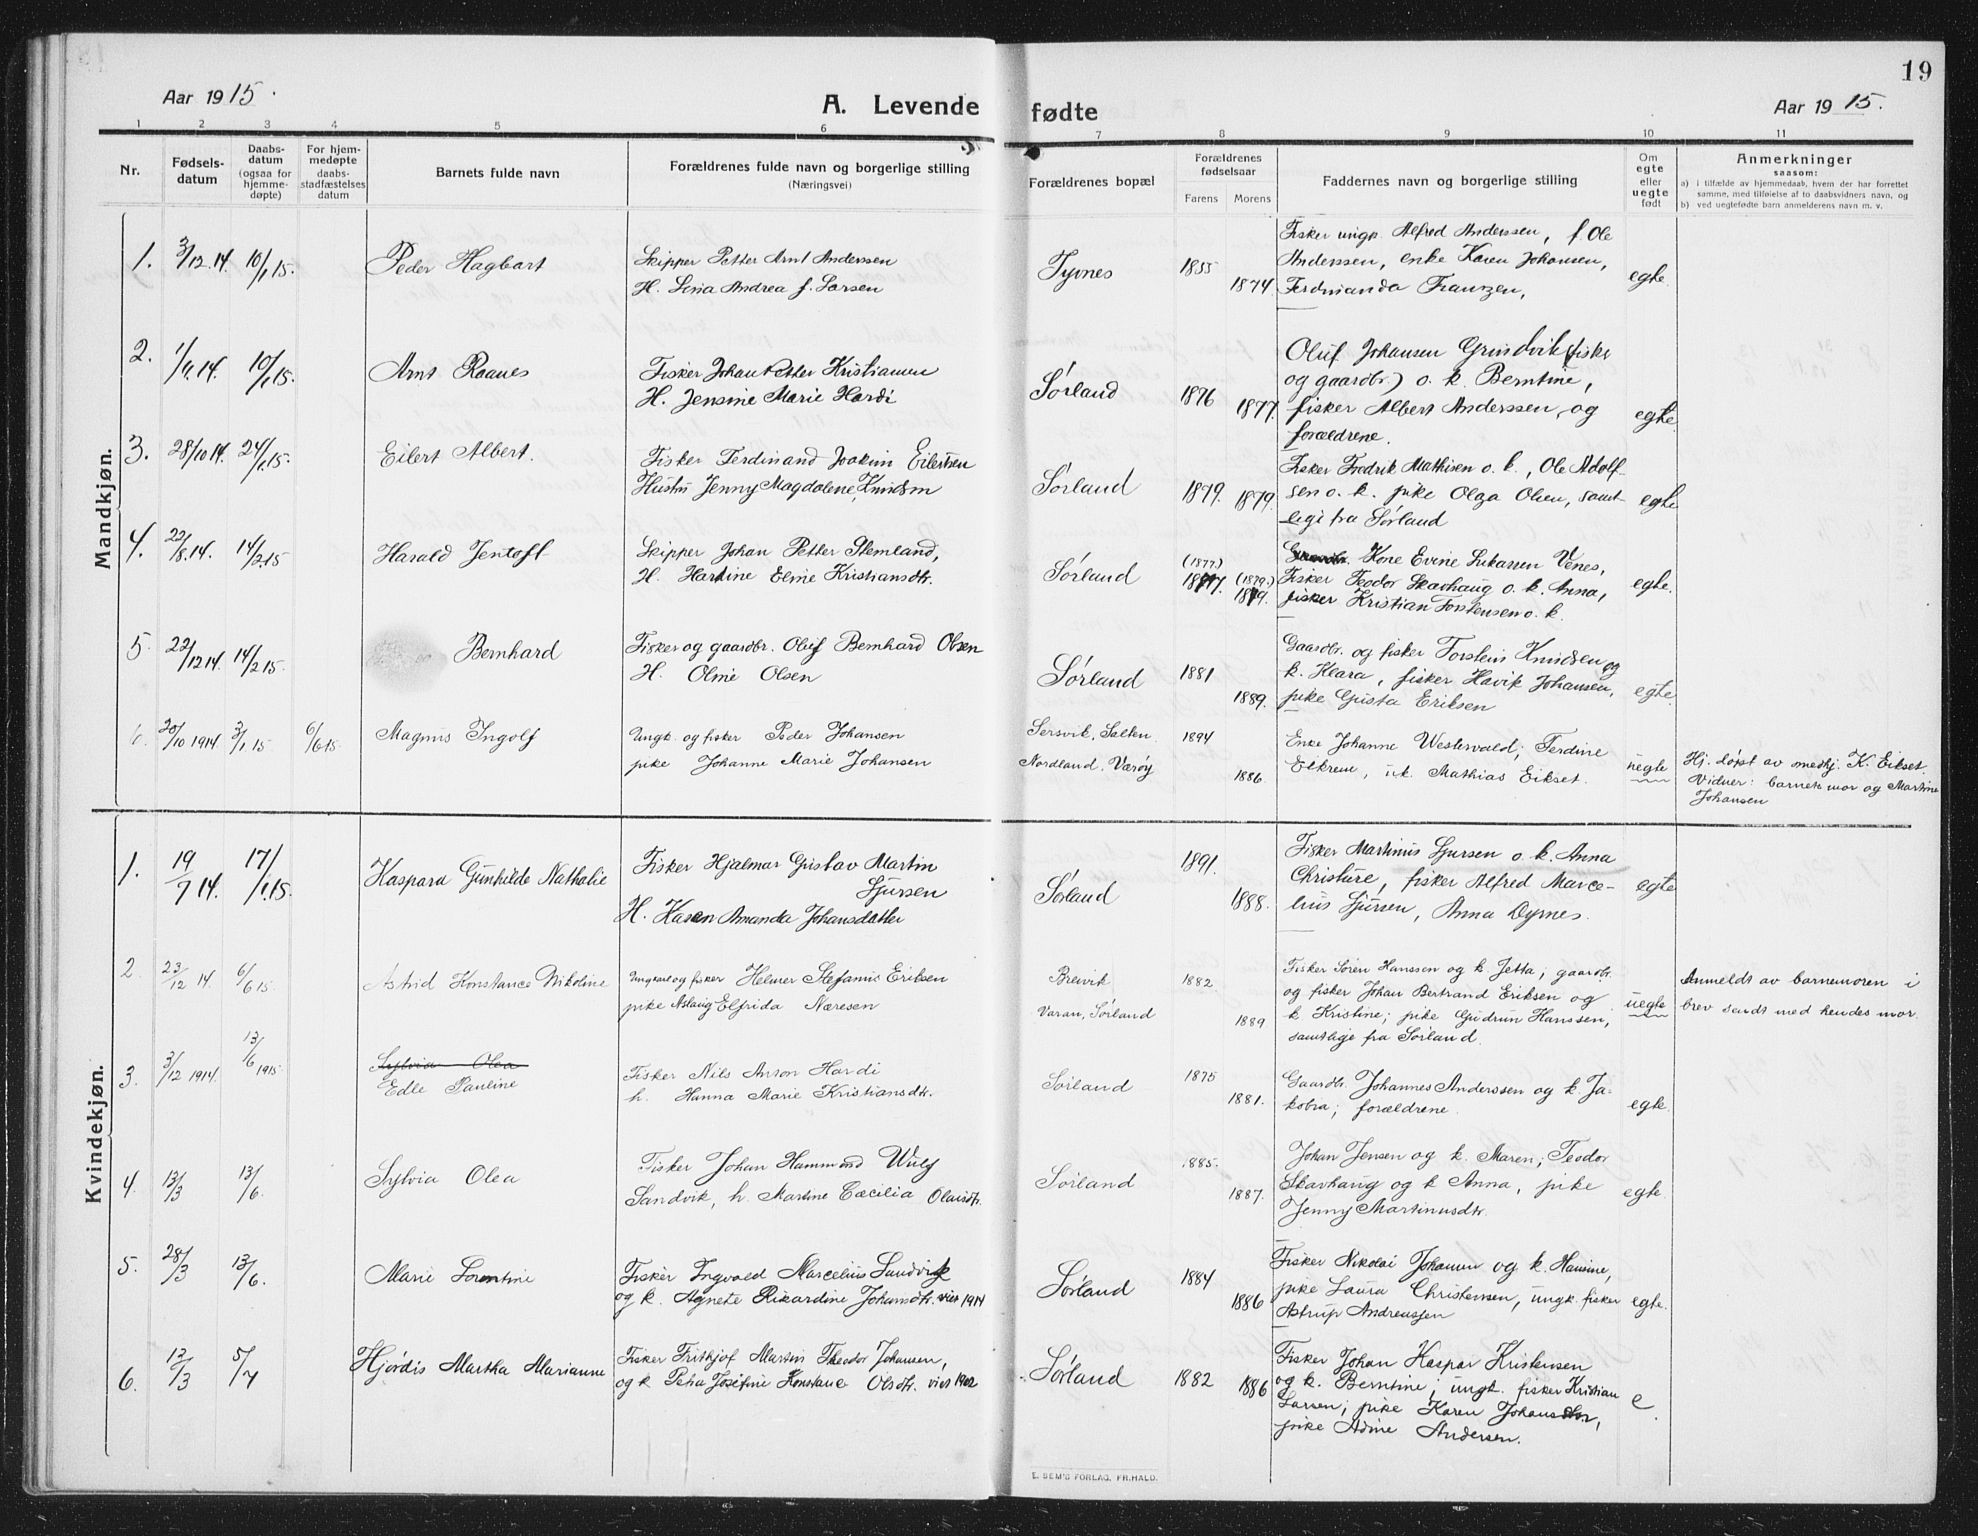 19
Aar 1915.
A. Levende fødte
Aar 1915.
1 2 3 4 5 6 7 8 9 10 11
Nr.
Fødsels-
datum
Daabs-
datum
(ogsaa for
hjemme-
døpte)
For hjem-
medøpte
daabs-
stadfæstelses
datum
Barnets fulde navn
Forældrenes fulde navn og borgerlige stilling
(Næringsvei)
Forældrenes bopæl
Forældrenes
fødselsaar
Farens Morens
Faddernes navn og borgerlige stilling
Om
egte
eller
uegte
født
Anmerkninger
saasom:
a) i tilfælde av hjemmedaab, hvem der har forrettet
samme, med tilføielse af to daabsvidners navn, og
b) ved uegtefødte barn anmelderens navn m. v.
Mandkjøn.
1. 3/12 14. 10/1 15. Peder Hagbart
Skipper Petter Arnt Anderssen
H. Lina Andrea f. Larsen
Tyvnes 1855 1874.
Fisker ungk. Alfred Anderssen, f. Ole
Anderssen, enke Karen Johansen,
Ferdinanda Frantzen,
egte.
2. 10/1 15. Arnt Raanes
Fisker Johan Petter Kristiansen
H. Jensine Marie Hardi
Sørland 1876 1877.
Oluf Johansen Grindvik (fisker
og gaardbr.) o. k. Berntine,
fisker Albert Anderssen, og
forældrene.
egte.
3. 28/10 14. 24/1 15. Eilert Albert.
Fisker Ferdinand Joakim Eilertsen
Hustru Jenny Magdalene Knudsen
Sørland 1879. 1879.
Fisker Fredrik Mathisen o. k., Ole Adolf-
sen o. k. pike Olga Olsen, samt-
lige fra Sørland
egte
4. 22/8 14. 14/2 15 Harald Jentoft
Skipper Johan Petter Stemland,
H. Hartine Eline Kristiansdtr.
Sørland (1877.) 1877. (1879.) 1879.
Kone Evine Lukassen Venes,
Fisker Teodor Skavhaug o. k. Anna,
fisker Kristian Torstensen o. k.
egte.
5. 22/12 14. 14/2 15. Bernhard
Fisker og gaardbr. Oluf Bernhard Olsen
H. Oline Olsen
Sørland 1881 1889.
Gaardbr. og fisker Torstein Knudsen og
k. Klara, fisker Havik Johansen,
pike Gusta Eriksen
egte.
6. 20/10 1914 3/1 15 6/6 15. Magnus Ingolf
Ungk. og fisker Peder Johansen
pike Johanne Marie Johansen
Sersvik, Salten.
Nordland, Værøy
1894 1886.
Enke Johanne Westervald; Ferdine
Elkrem, uk. Mathias Eikset.
uegte
Hj. døpt av smedhj. K. Eikset.
Vidner: barnets mor og Martine
Johansen
Kvindekjøn.
1. 19/7 14. 17/1 15. Kaspara Gunhilde Nathalie
Fisker Hjalmar Gustav Martin
Sjursen
H. Karen Amanda Johansdatter
Sørland 1891. 1888.
Fisker Martinus Sjursen o. k. Anna
Christine, fisker Alfred Marce-
lius Sjursen, Anna Dyrnes.
egte
2. 23/12 14. 6/6 15. Astrid Konstance Nikoline
Ungkarl og fisker Helmer Stefanus Eriksen
pike Aslaug Elfrida Næresen
Breivik
Varan, Sørland
1882. 1889
Fisker Søren Hanssen og k. Jetta; gaardbr.
og fisker Johan Bertrand Eriksen og
k Kristine; pike Gudrun Hanssen;
samtlige fra Sørland.
uegte
Anmeldt av barnemoren i
brev sendt med hendes mor.
3. 3/12 1914. 13/6 1915. Sylvia Olea
Edle Pauline
Fisker Nils Anton Hardi
h. Hanna Marie Kristiansdtr.
Sørland 1875 1881.
Gaardbr. Johannes Anderssen og k. Ja-
kobia; forældrene.
egte.
4. 13/3 13/6. Sylvia Olea
Fisker Johan Hammond Wulf
Sandvik, h. Martine Cæcilia Olaisdtr.
Sørland 1885. 1887.
Johan Jensen og k. Maren; Teodor
Skavhaug og k Anna, pike
Jenny Martinusdtr.
egte.
5. 28/3 13/6. Marie Lorentine
Fisker Ingvald Marcelius Sandvik
og k. Agnete Rikardine Johansdtr. viet 1911
Sørland 1884 1886
Fisker Nikolai Johansen og k. Hansine,
pike Laura Christensen, ungk. fisker
Astrup Andreassen
egte.
6. 12/3 5/7 Hjørdis Martha Marianne
Fisker Frithjof Martin Theodor Johansen,
og k Petra Josefine Konstanse Olsdtr. viet 1902
Sørland 1882 1886
Fisker Johan Kaspar Kristensen
og k. Berntine; ungk. fisker Kristian
Larsen; pike Karen Johansdtr,
pike Adine Andersen.
e.
E. SEM'S FORLAG. FR.HALD.